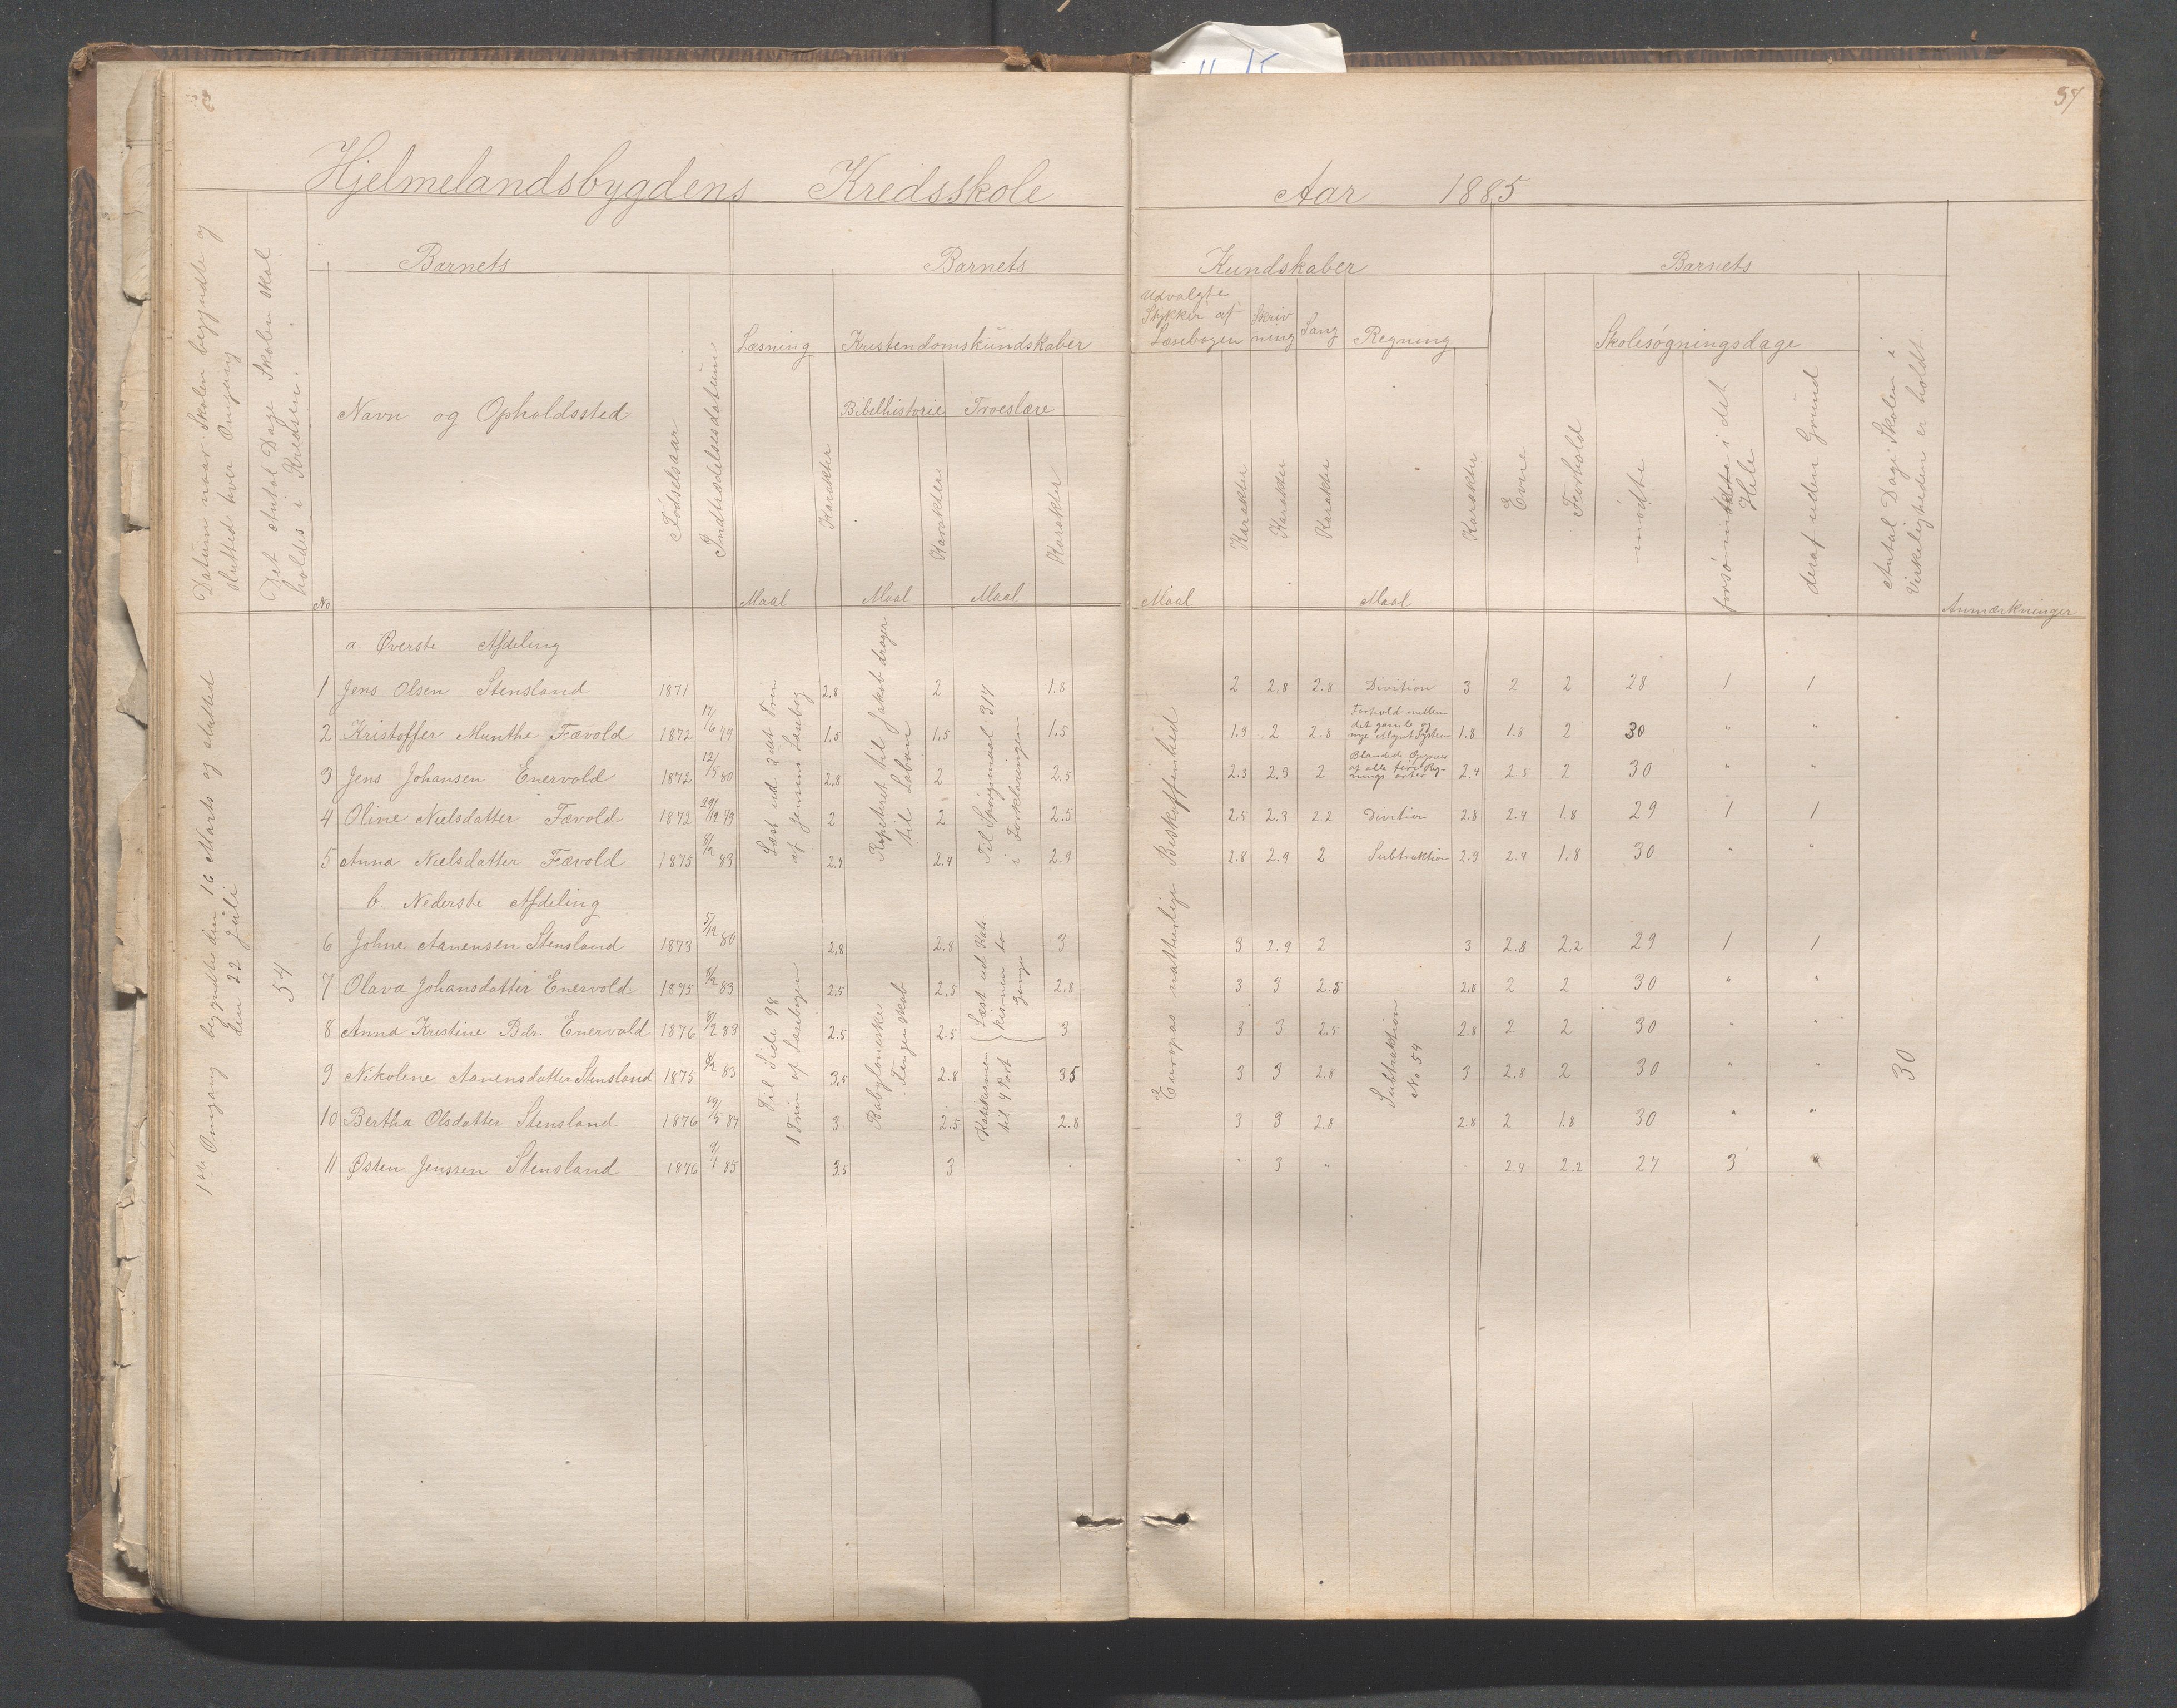 37
Hjelmelandsbygdens Kredsskole Aar 1885
Datum naar Skolen begyndte og
slutted hver Omgang
Det Antal Dage Skolen skal
holdes i Kredsen.
Barnets
Barnets
Kundskaber
Barnets
No
Navn og Opholdssted
Fødselsaar
Indtrædelsesdatum
Læsning
Kristendomskundskaber
Bibelhistorie
Troeslære
Maal
Karakter
Maal
Karakter
Maal
Karakter
Udvalgte
Stykker af
Læsebogen
Skriv
ning
Sang
Regning
Maal
Karakter
Karakter
Karakter
Maal
Karakter
Evne
Forhold
Skolesøgningsdage
mødte
forsømte i det
Hele
deraf uden Grund
Antal Dage Skolen i
Virkeligheden er holdt
Anmærkninger
1ste Omgang begyndte den 16 Marts og slutted
den 22 Juli
54
Læst ud 2det Trin
af Jensens Læsebog
Repeteret til Jakob drager
til Laban
Til Spørgsmaal 314
i Forklaringen
Europas naturlige Beskaffenhed
a. Øverste Afdeling
1 Jens Olsen Stensland 1871 2.8 2 1.8 2 2.8 2.8 Division 3 2 2 28 1 1
2 Kristoffer Munthe Fævold 1872 17/6 79 1.5 1.5 1.5 1.9 2 2.8 Forhold mellem
det gamle og
nye Mynt System 1.8 1.8 2 30 " "
3 Jens Johansen Enervold 1872 12/5 80 2.8 2 2.5 2.3 2.9 2 Blandede Opgaver
af alle fire Reg-
nings arter 2.4 2.5 2 30 " "
4 Oline Nielsdatter Fævold 1872 29/12 79 2 2 2.5 2.5 2.3 2.2 Division 2.8 2.4 1.8 29 1 1
5 Anna Nielsdatter Fævold 1875 83 2.4 2.4 2.9 2.8 2.9 2 Subtraktion 2.9 2.4 1.8 30 " "
b. Nederste Afdeling
Til Side 98
1 Trin af Læsebogen
Babyloniske
Fangenskab
Læst ud Kate-
kismen to
Gange
Katekismen
til 4 Part
Subtraktion
No 54
30
6 Johne Aanensen Stensland 1873 5/12 80 2.8 2.8 3 3 2.9 2 3 2.8 2.2 29 1 1
7 Olava Johansdatter Enervold 1875 83 2.5 2.5 2.8 3 3 2.8 2.8 2 2 30 " "
8 Anna Kristine Bdr. Enervold 1876 83 2.5 2.5 3 3 3 2.5 2.8 2 2 30 " "
9 Nikolene Aanensdatter Stensland 1875 83 3.5 2.8 3.5 3 3 2.8 3 2.8 2 30 " "
10 Bertha Olsdatter Stensland 1876 19/5 84 3 2.5 2.8 3 3 2.8 2.8 2 1.8 30 " "
11 Østen Jenssen Stensland 1876 9/1 85 3.5 3 " " 3 " " 2.4 2.2 27 3 "